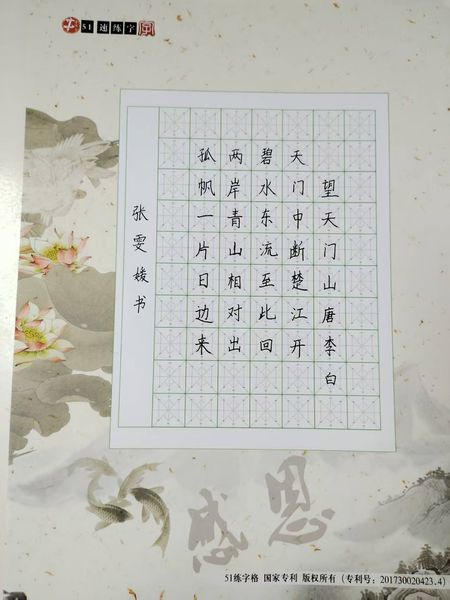 51速练字
望天门山唐李白
天门中断楚江开
碧水东流至此回
两岸青山相对出
孤帆一片日边来
张雯媛书
感恩
51练字格 国家专利 版权所有（专利号：201730020423.4）